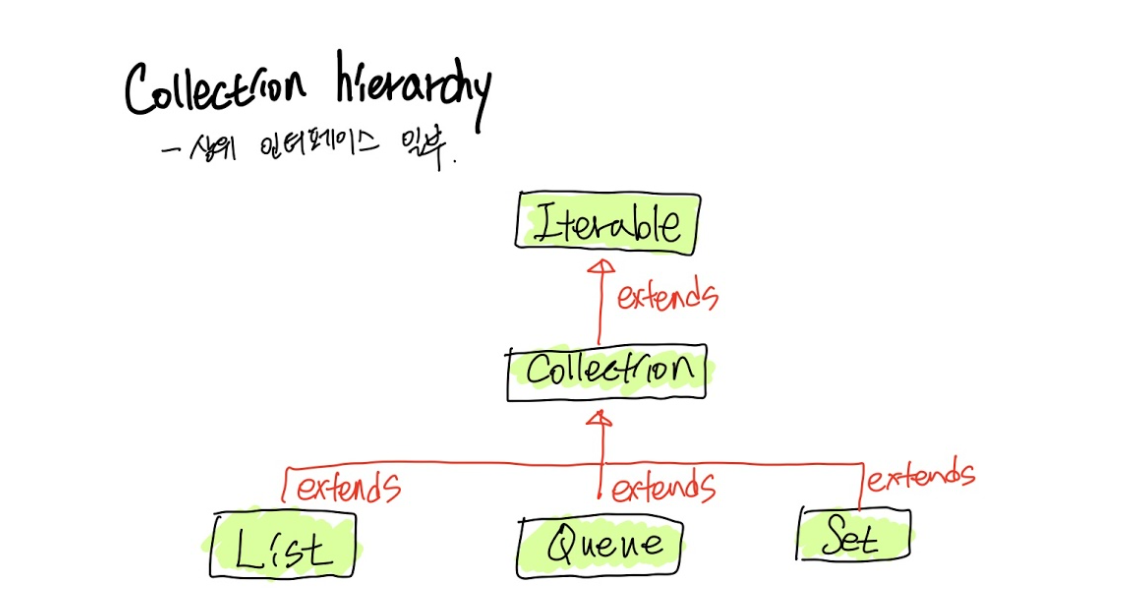 Collection hierarchy
- 상위 인터페이스 일부.
Iterable
extends
Collection
extends extends extends
List Queue Set